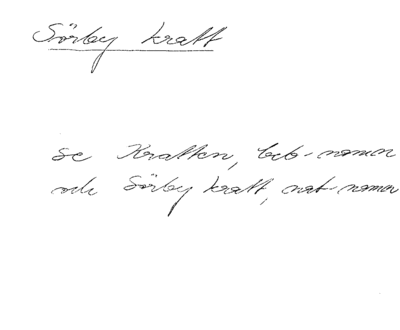 Sörby kratt
se Kratten, beb-namn
och Sörby kratt, nat-namn